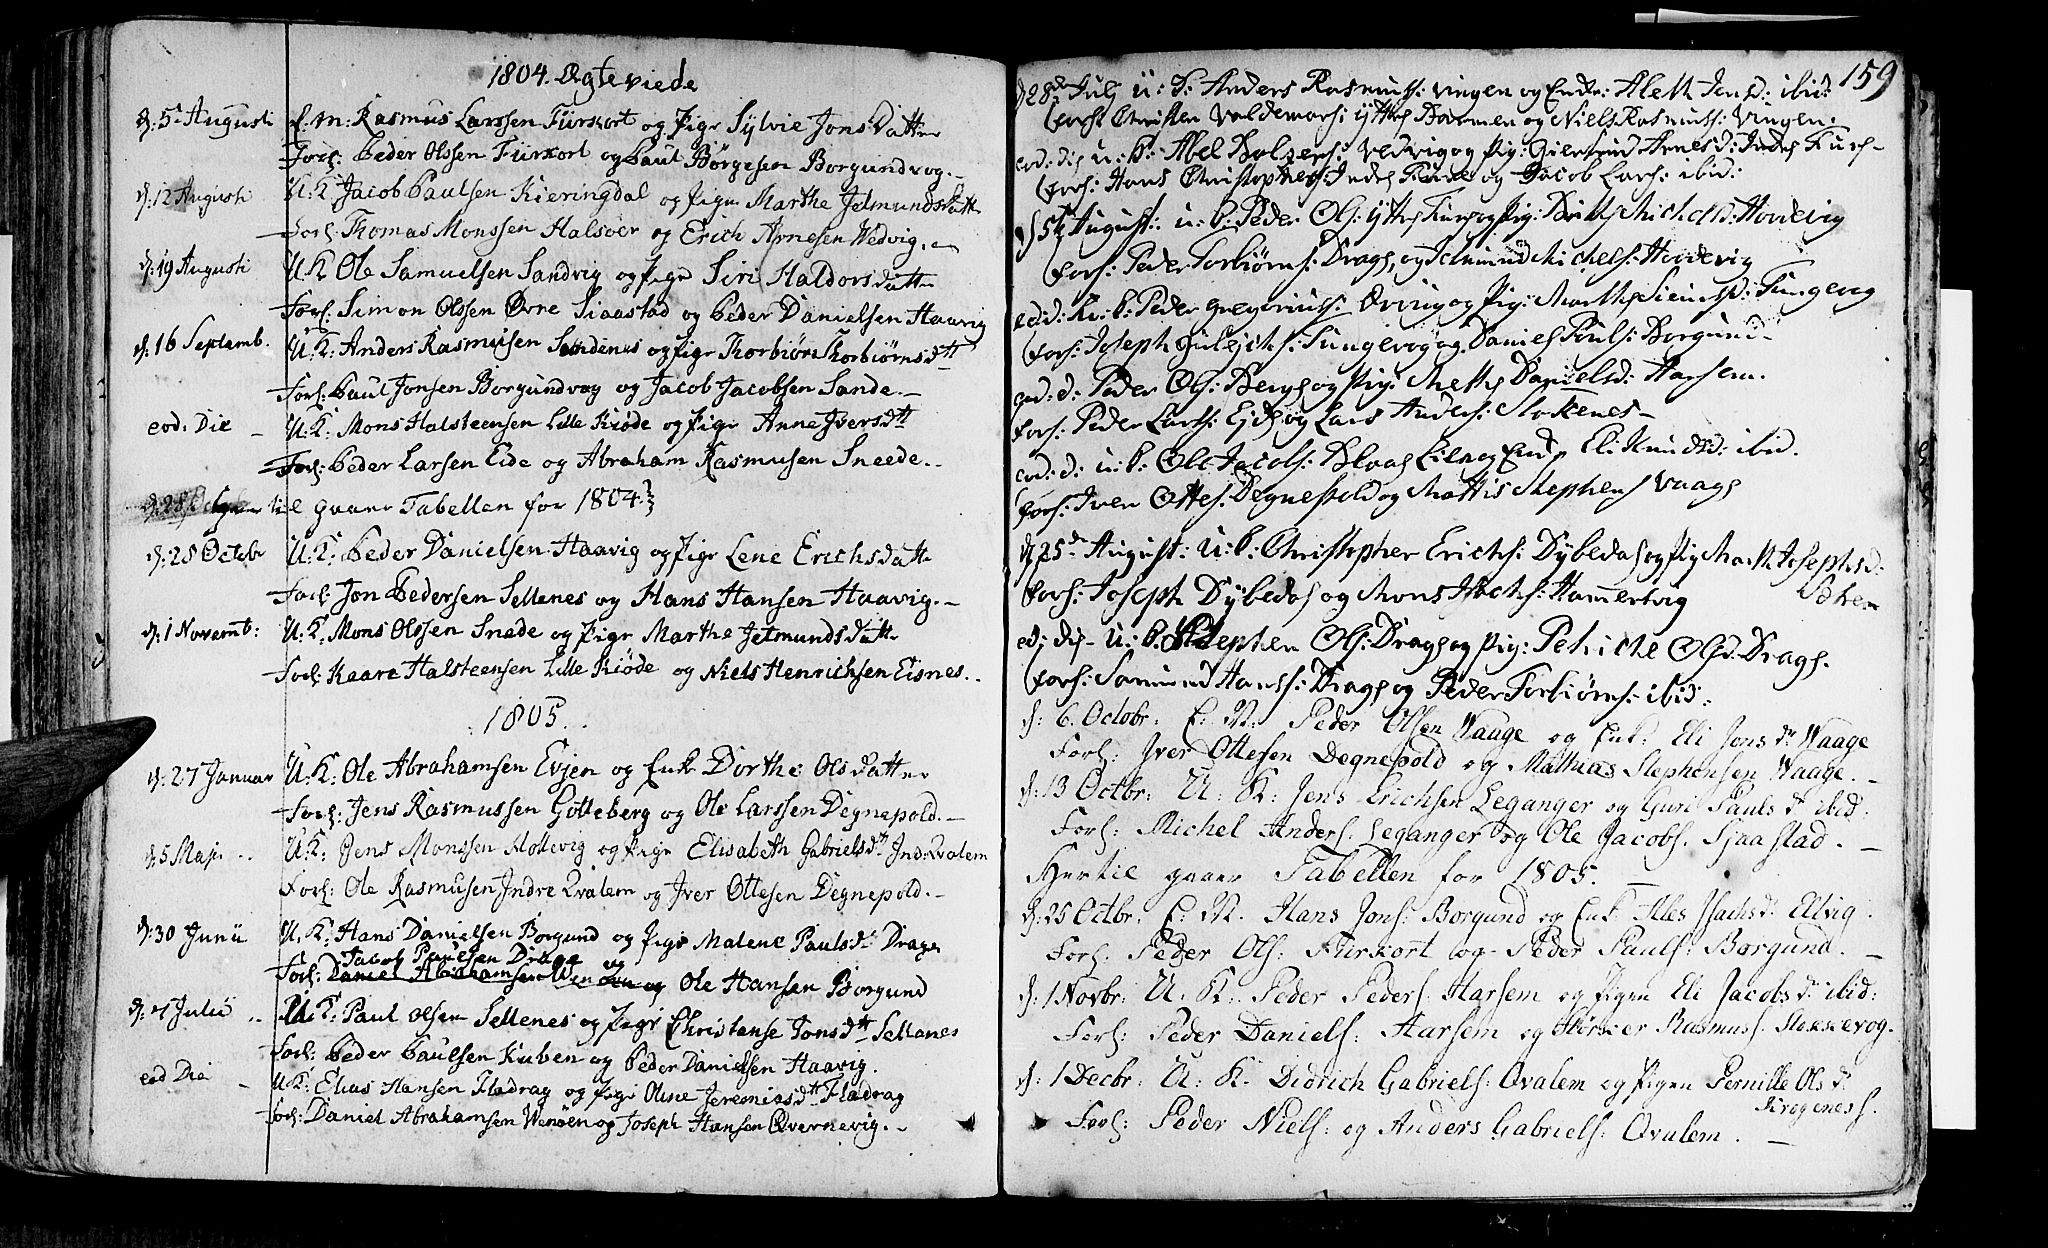 1804. Ægteviede
d: 5t Augusti E: M: Rasmus Larssen Fürkort og Pige Sylvie Jons Datter
Forl: Peder Olssen Fürkort og Paul Börgesen Borgundvog. —
d: 12 Augusti U: K: Jacob Paulsen Kieringdal og Pigen Marthe Jetmunds Datt
Forl: Thomas Monssen Halsöer og Erich Arnesen Wedvig. —
d: 19 Augusti U: K: Ole Samuelsen Sandvig og Pige Siri Haldors Datter
Forl: Simon Olssen Øvre Siaastad og Peder Danielsen Haavig
d: 16 Septemb. U: K: Anders Rasmusen og Pige Thorbiör Thorbiörnsdtt
Forl: Paul Jonsen Borgundvog og Jacob Jacobsen Sande. —
eod: Die — U: K: Mons Halsteensen Lille Kiöde og Pige Anne Iversdtt
Forl: Peder Larsen Eide og Abraham Rasmusen Sneede. —
til gaaer Tabellen for 1804.
d: 28 Octobr U: K: Peder Danielsen Haavig og Pige Lene Erichs Datter
Forl: Jon Pedersen Sellenes og Hans Hansen Haavig. —
d: 1 Novemb: U: K: Mons Olssen Snede og Pige Marthe Jetmunds Datter
Forl: Kaare Halsteensen Lille Kiöde og Niels Henrichsen Eisnes. .
1805.
d: 27 Januar U: K: Ole Abrahamsen Evjen og Enke Dorthe Ols Datter
Forl: Jens Rasmussen Götteberg og Ole Larssen Degnepold. —
d: 5 Maji U: K: Jens Monssen og Pige Elisabeth Gabrielsdr Ind: Qvalem
Forl: Ole Rasmusen Indre Qvalem og Iver Ottesen Degnepold. —
d: 30 Junii U: K: Hans Danielsen Borgund og Pige Malene Paulsdr Drage
Jacob Paulsen Drage og
Forl: Daniel Abrahamsen og Ole Hansen Borgund
d: 7 Julii U: K: Paul Olsen Sellenes og Pige Christense Jonsdtt Sellanes
Forl: Peder Paulsen Kuben og Peder Danielsen Haavig.
eod Die — U: K: Elias Hansen Fladrag og Pige Oline Jeremiasdtt Fladrag
Forl: Daniel Abrahamsen Wenöen og Joseph Hansen Qvernevig. —
159
d 28de Julj U: K: Anders Rasmus: Vingen og Enke: Alett Jensd: ibid:
Forl: Christen Valdemars: Ytter Barmen og Niels Rasmus: Vingen.
eod: die U: K: Abel Vedvig og Pig: Giertrud Arnesd: Indre Furs-
Forl: Hans Christophers: Indre og Jacob Lars: ibid:
d 5te August: U: K: Peder Ols: Ytre og Pig: Brithe Michelsd: Hordevig
Forl: Peder Torbiørns: Drage, og Jetmund Michels: Hordevig
eod: d: U: K: Peder Gregorius: og Pig: Marthe Tungevog
Forl: Joseph Tungevog og Daniel Pouls: Borgund.
eod: d: Peder Ols: Berge og Pig: Mette Danielsd: Harsem.
Forl: Peder Lars: Ejde og Lars Anders: Stokenes —
eod: d: U: K: Ole Jacobs: og Enke Eli Knudsd: ibid.
Forl: Iver Ottes: Degnepold og Mattis Stephens Vaage
d 25de August: U: K: Christopher Erichs: Dybedal og Pig Marte Josephsd:
Forl: Joseph Dybedal og Mons Isachs: Hammersvig
eod: die — U: K: Stephen Ols: Drage og Pig: Petriche Olsd: Drage.
Forl: Samund Hans: Drage og Peder Torbiørns: ibid:
d: 6. Octobr: E: M: Peder Olsen Waage og Enk: Eli Jons dr Waage
Forl: Iver Ottesen Degnepold og Mathias Stephensen Waage. —
d: 13 Octbr: U: K: Jens Erichsen Leganger og Guri Pauls dr ibid:
Forl: Michel Anders. Leganger og Ole Jacobs. Sjaastad. —
Hertil gaaer Tabellen for 1805. —
d: 25 Octbr: E: M. Hans Jons: Borgund og Enk: Ales Isachsdr Elvig.
Forl: Peder Ols: Fürkort og Peder Pauls: Borgund. —
d: 1 Novbr: U. K: Peder Peders: Harsem og Pigen Eli Jacobs dr ibid:
Forl: Peder Daniels: Harsem og Rasmus: Stokkevog.
d: 1 Decbr: U: K. Didrich Gabriels: Qvalem og Pigen Pernille Ols dr
Krogeness.
Forl: Peder Niels: og Anders Gabriels: Qvalem. —